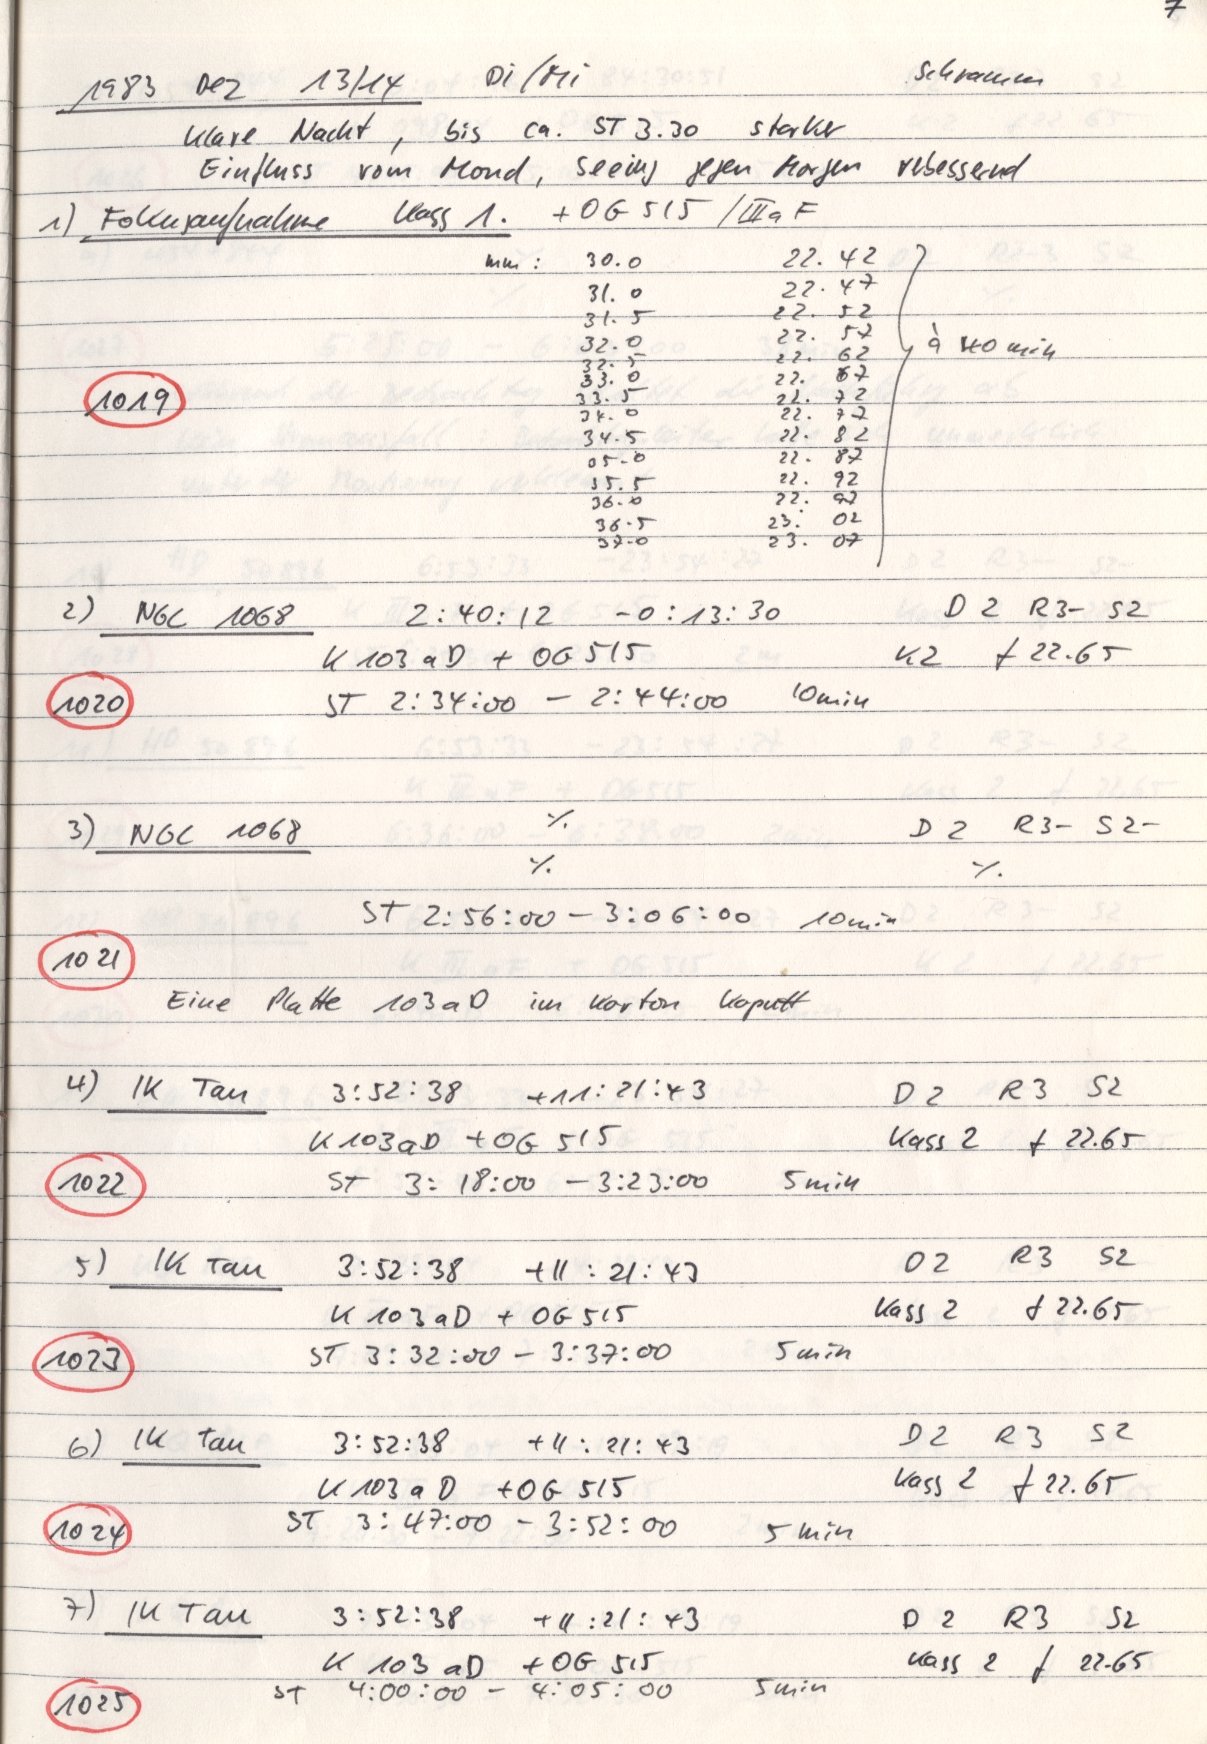 7
1983 Dez 13/14 Di/Mi Schramm
Klare Nacht, bis ca. ST 3.30 starker
Einfluss vom Mond, Seeing gegen Morgen vebessernd
1) Fokusaufnahme Kass 1. + OG 515 / III a F
mm: 30.0 22.42
31.0 22.47
31.5 22.52
32.0 22.57
à 40 min
32.5 22.62
33.0 22.67
1019
33.5 22.72
34.0 22.77
34.5 22.82
35.0 22.87
35.5 22.92
36.0 22.97
36.5 23.02
37.0 23.07
2) NGC 1068 2:40:12 -0:13:30 D2 R3- S2
K 103 aD + OG 515 K2 f 22.65
1020 ST 2:34:00 - 2:44:00 10min
3) NGC 1068 ٪ D2 R3- S2-
٪ ٪
ST 2:56:00 - 3:06:00 10min
1021
Eine Platte 103aD im Karton kaputt
4) IK Tau 3:52:38 +11:21:43 D2 R3 S2
K 103aD + OG 515 Kass 2 f 22.65
1022 ST 3:18:00 - 3:23:00 5min
5) IK Tau 3:52:38 +11:21:43 D2 R3 S2
K 103aD + OG 515 Kass 2 f 22.65
1023 ST 3:32:00 - 3:37:00 5min
6) IK Tau 3:52:38 +11:21:43 D2 R3 S2
K 103 aD + OG 515 Kass 2 f 22.65
1024 ST 3:47:00 - 3:52:00 5min
7) IK Tau 3:52:38 +11:21:43 D2 R3 S2
K 103 aD + OG 515 Kass 2 f 22.65
1025 ST 4:00:00 - 4:05:00 5min